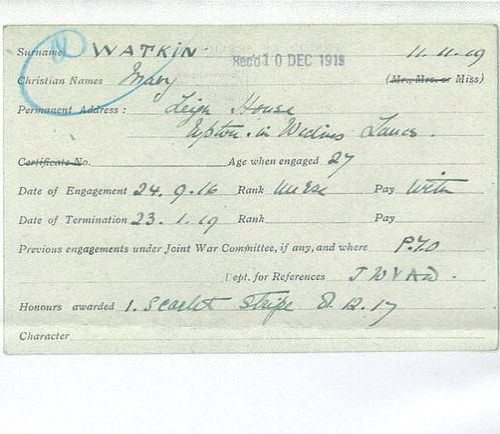 Surname WATKIN. 11.11.19
Recd 10 DEC 1919
Christian Names Mary (Mr., Mrs. or Miss)
Permanent Address: Leigh House
Upton-in Widnes Lancs.
Certificate No. Age when engaged 27
Date of Engagement 24.9.16 Rank Nurse Pay With
Date of Termination 23.1.19 Rank Pay
Previous engagements under Joint War Committee, if any, and where P.T.O
Dept. for References J W V A D.
Honours awarded 1. Scarlet Stripe 8.12.17
Character